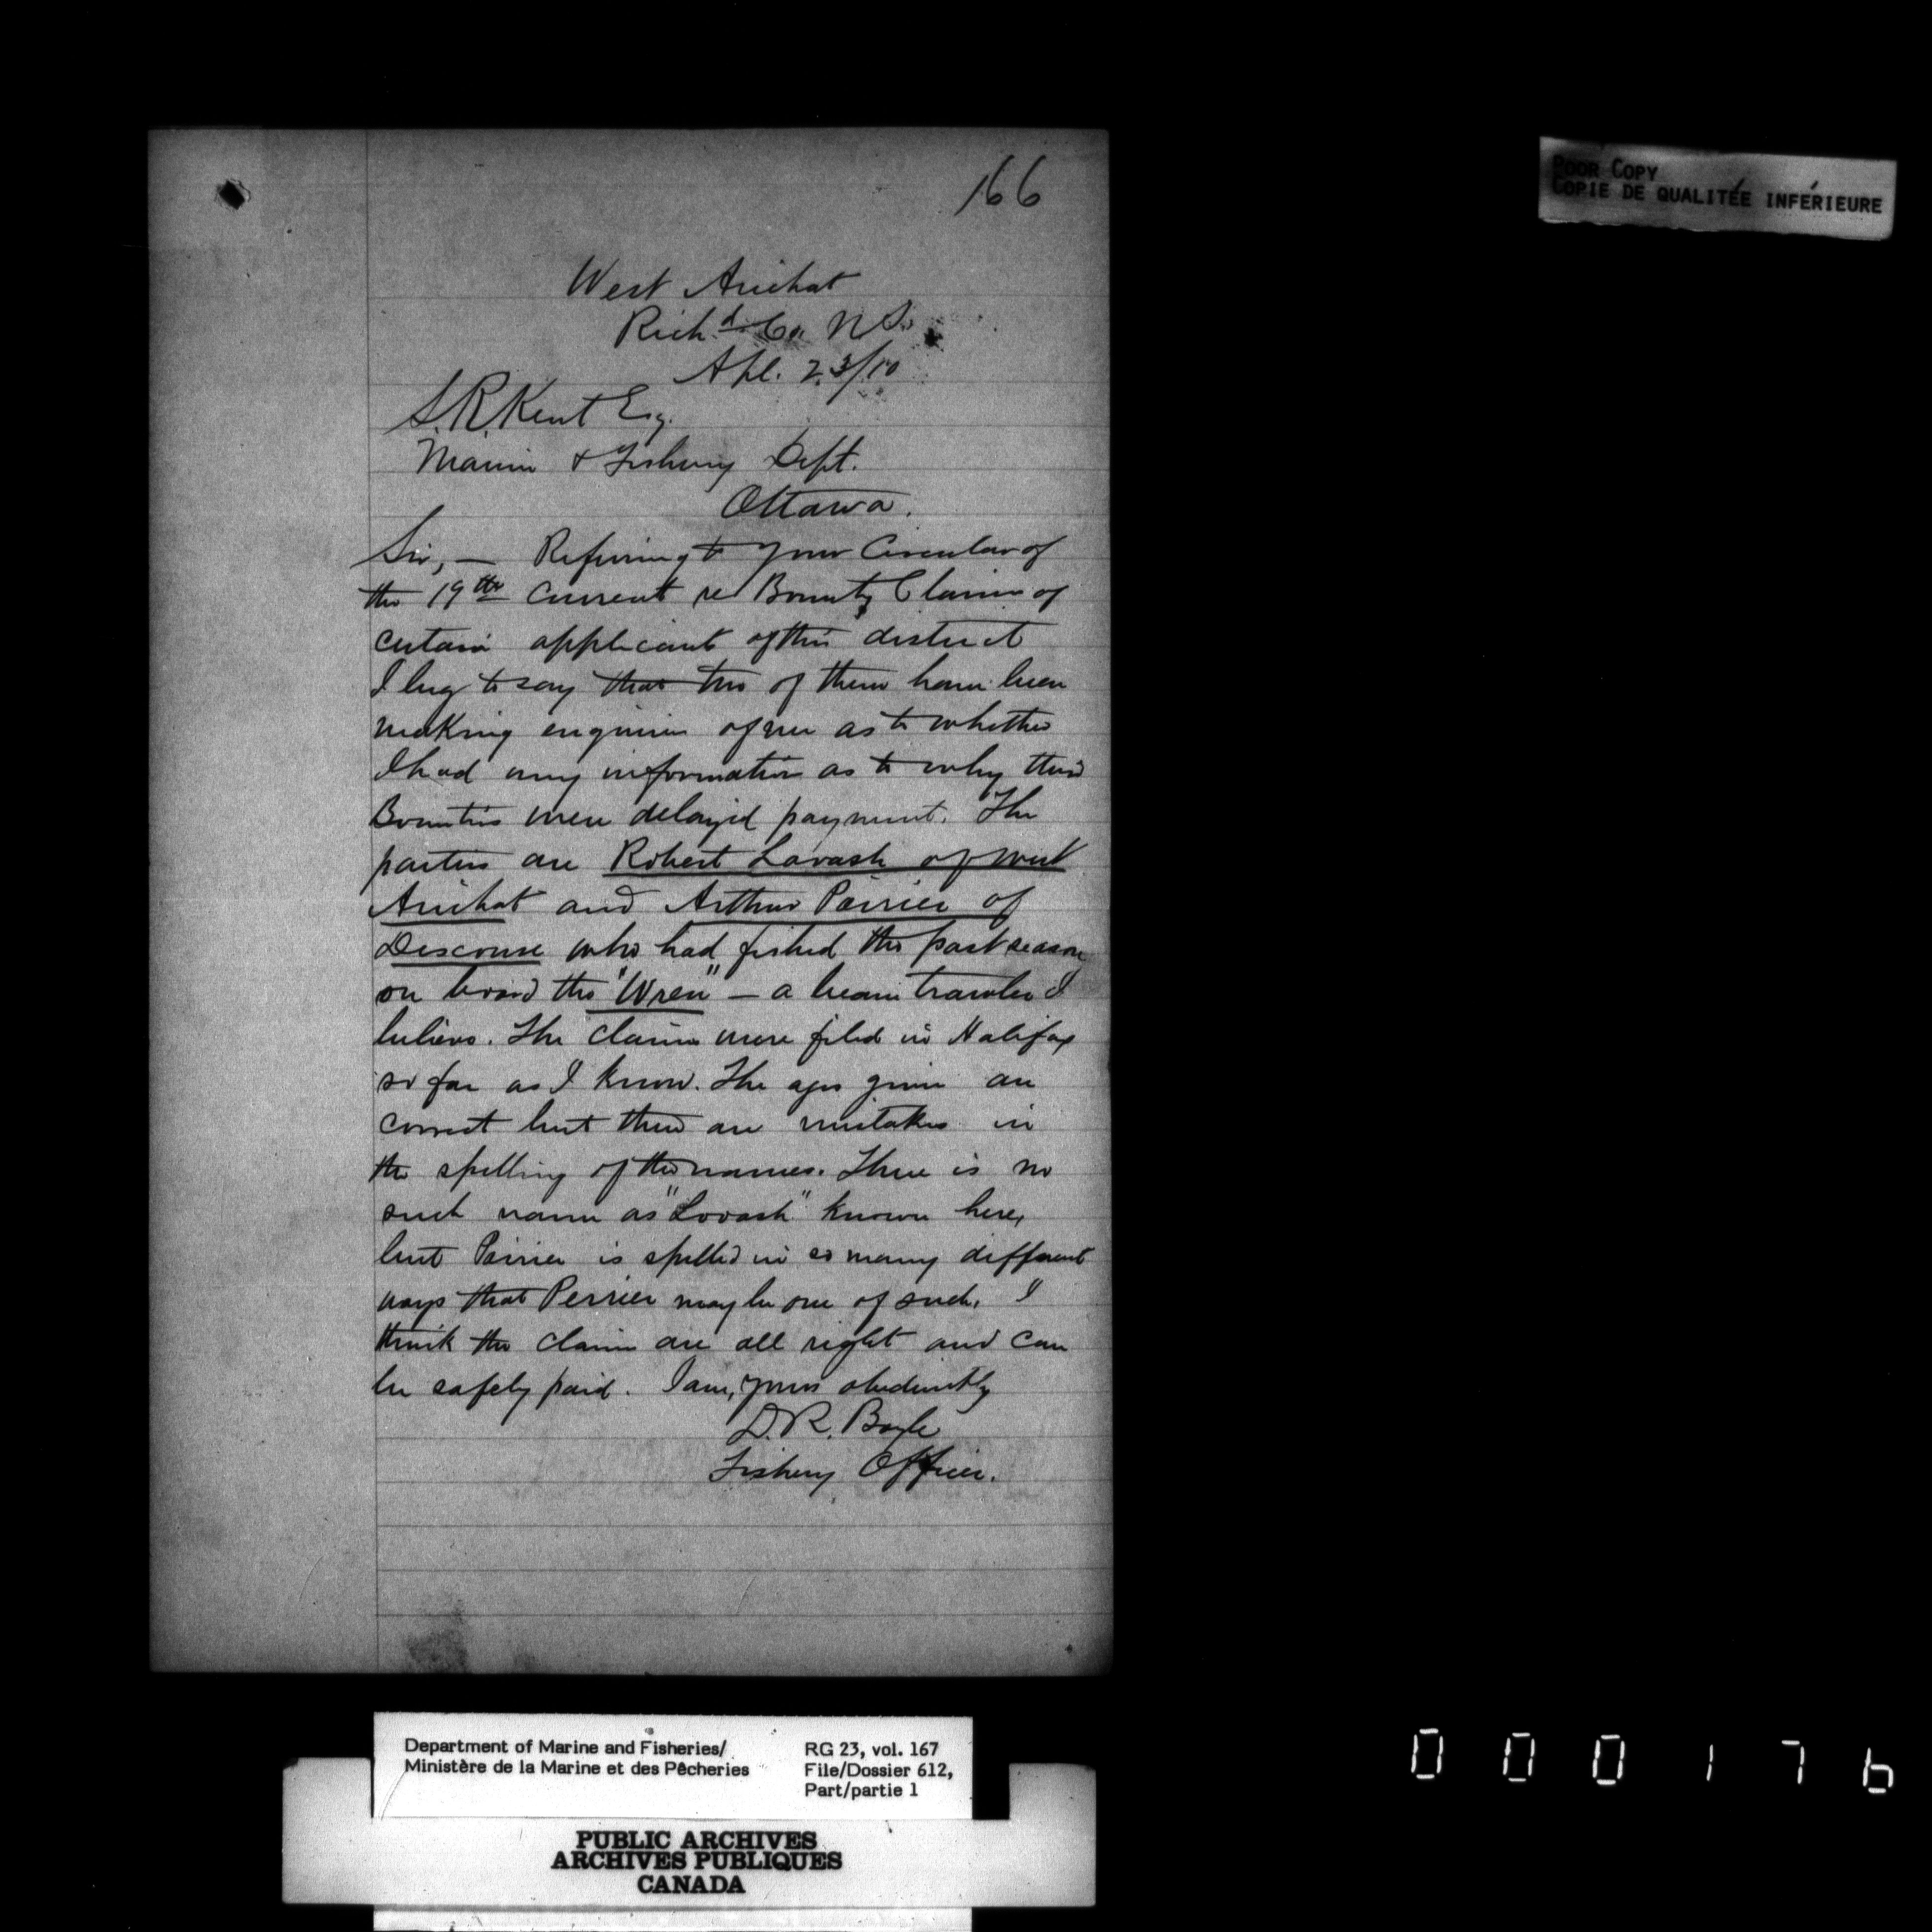 166
POOR COPY
COPIE DE QUALITÉE INFÉRIEURE
West Arichat
Rich.d Co. N.S.
Apl. 23/10
S.R. Kent Esq.
Marine & Fishery Dept.
Ottawa.
Sir, — Referring to your Circular of
the 19th Current re Bounty Claims of
certain applicants of this district
I beg to say that two of them have been
making enquiries of me as to whether
I had any information as to why their
Bounties were delayed payment. The
parties are Robert Lavash of West
Arichat and Arthur Poirier of
Descouse who had fished the past season
on board the "Wren" — a beam trawler I
believe. The claims were filed in Halifax
so far as I know. The ages given are
correct but there are mistakes in
the spelling of the names. There is no
such name as "Lovash" known here,
but Poirier is spelled in so many different
ways that Perrier may be one of such. I
think the claims are all right and can
be safely paid. I am, yours obediently
D.R. Boyle
Fishery Officer.
Department of Marine and Fisheries/
Ministère de la Marine et des Pêcheries
RG 23, vol. 167
File/Dossier 612,
Part/partie 1
PUBLIC ARCHIVES
ARCHIVES PUBLIQUES
CANADA
000176